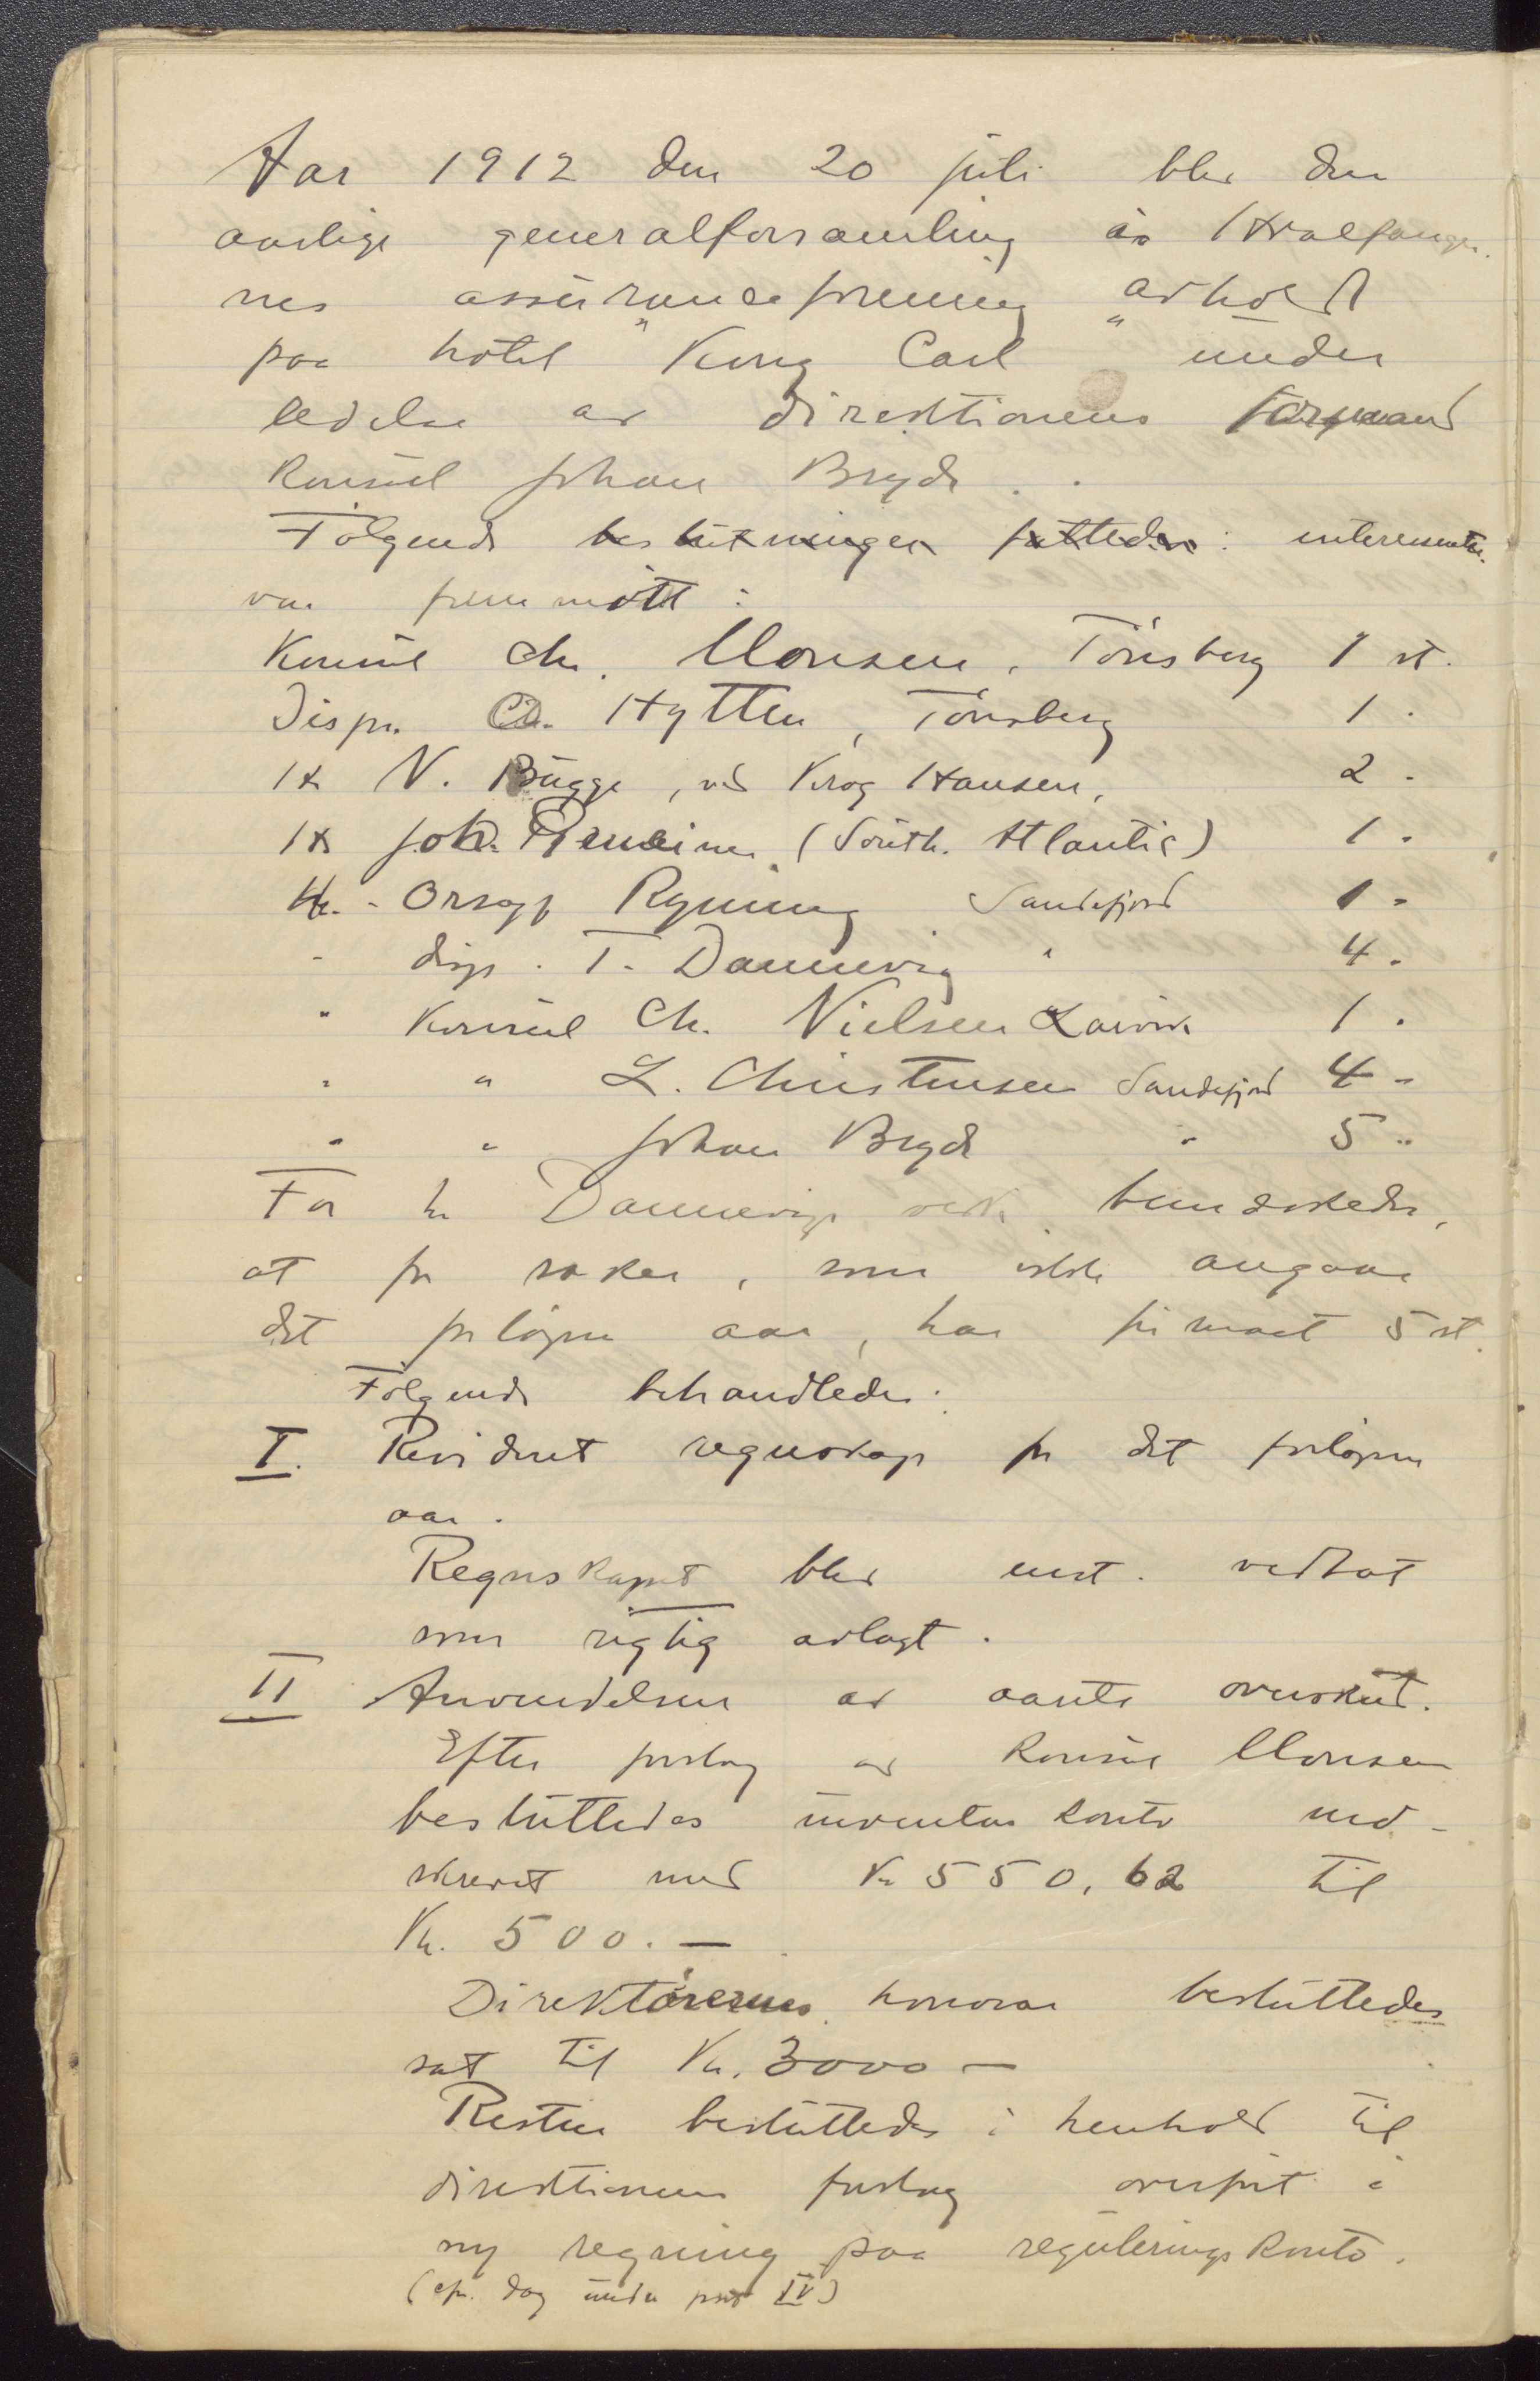 Aar 1912 den 20 juli blev den
aarlige generalforsamling av Hvalfanger-
nes assuranceforening avholdt
paa hotel "Kong Carl" under
ledelse av direktionens formand
konsul Johan Bryde.
Følgende beslutninger fattedes: interessenter
var fremmøtt:
Konsul Chr. Monsen, Tönsberg 1 st.
Disp. Chr. Hytten, Tönsberg 1 -
Hr N. Bugge, ved Krog Hansen, 2 -
Hr Joh. (South. Atlantic) 1 -
Hr. - Orsagf Ryning Sandefjord 1 -
- disp. T. Dannevig " 4 -
" Konsul Chr. Nielsen Larvik 1 -
" " L. Christensen Sandefjord 4 -
" " Johan Bryde " 5 -
For hr Dannevigs vedk. bemerkedes,
at for saker, som ikke angaar
det forløpne aar, har firmaet 5 st.
Følgende behandledes:
I. Revideret regnskap for det forløpne
aar.
Regnskapet blev enst. vedtat
som rigtig avlagt.
II Anvendelsen av aarets overskud.
Efter forslag av konsul Monsen
besluttedes inventar konto ned-
skrevet med Kr 550,62 til
Kr. 500.—
Direktörernes honorar besluttedes
sat til Kr. 3000 —
Resten besluttedes i henhold til
direktionens forslag overført i
ny regning paa regulerings konto.
(cfr. dog under post IV)